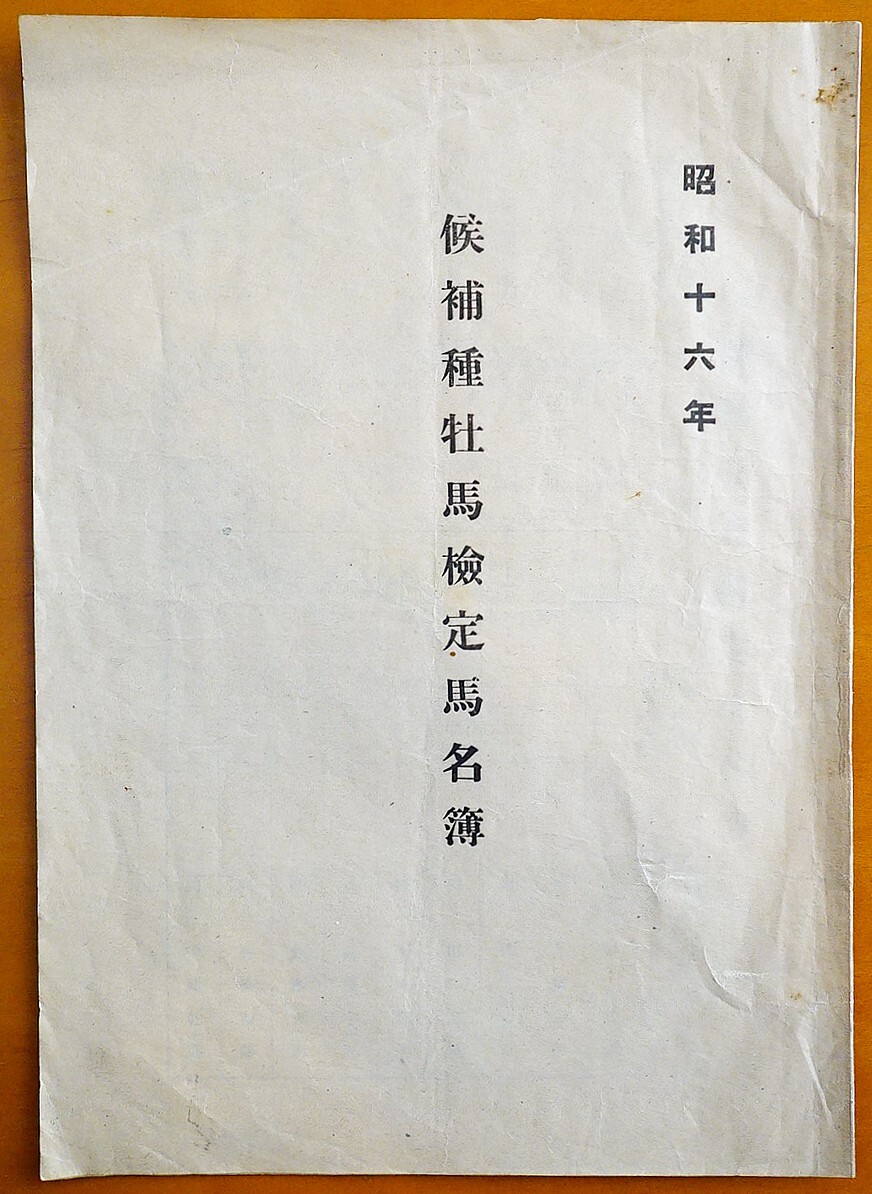 昭和十六年
候補種牡馬檢定馬名簿